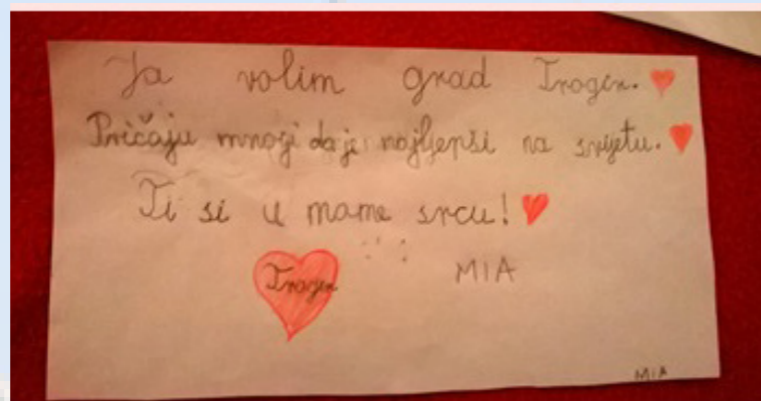 Ja volim grad Trogir.
Pričaju mnogi da je najljepši na svijetu.
Ti si u mome srcu!
Trogir
MIA
MIA